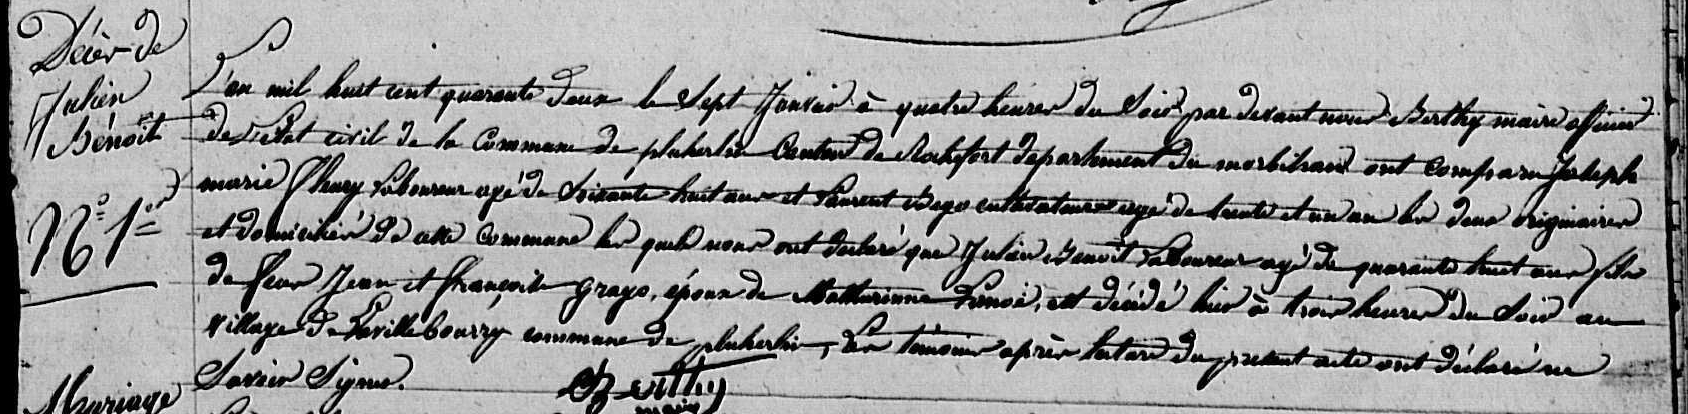 Décès de
Julien
Benoît
N° 1er
L'an mil huit cent quarante deux le sept Janvier à quatre heures du soir par devant nous Berthy maire officier
de l'état civil de la commune de pluherlin Canton de Rochefort departement du morbihan ont comparu Joseph
marie Thury laboureur agé de soixante huit ans et Laurent Bego cultivateur agé de trente et un an les deux originaires
et domiciliés de cette commune les quels nous ont declaré que Julien Benoît laboureur agé de quarante huit ans fils
de feu Jean et françoise Grayo, époux de Mathurinne, est décédé hier à trois heures du soir au
village de commune de pluherlin, Les témoins après lecture du présent acte ont déclaré ne
savoir signer.
Berthy
maire
Mariage